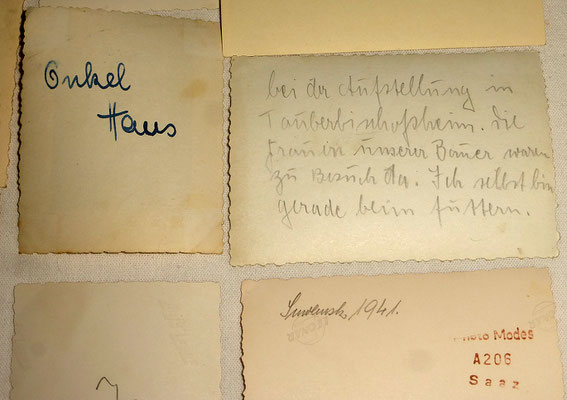 Onkel
Hans
bei der Aufstellung in
Tauberbischofsheim. Die
Frauen unserer Bauer waren
zu Besuch da. Ich selbst bin
gerade beim füttern.
Smolensk, 1941.
Photo Modes
A206
Saaz